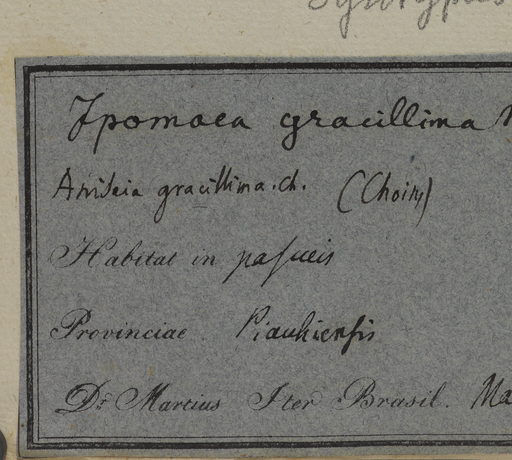 Syntypus
Ipomoea gracillima
Aniseia gracillima. Ch. (Choisy)
Habitat in pascuis
Provinciae Piauhiensis
Dr. Martius Iter Brasil. Ma